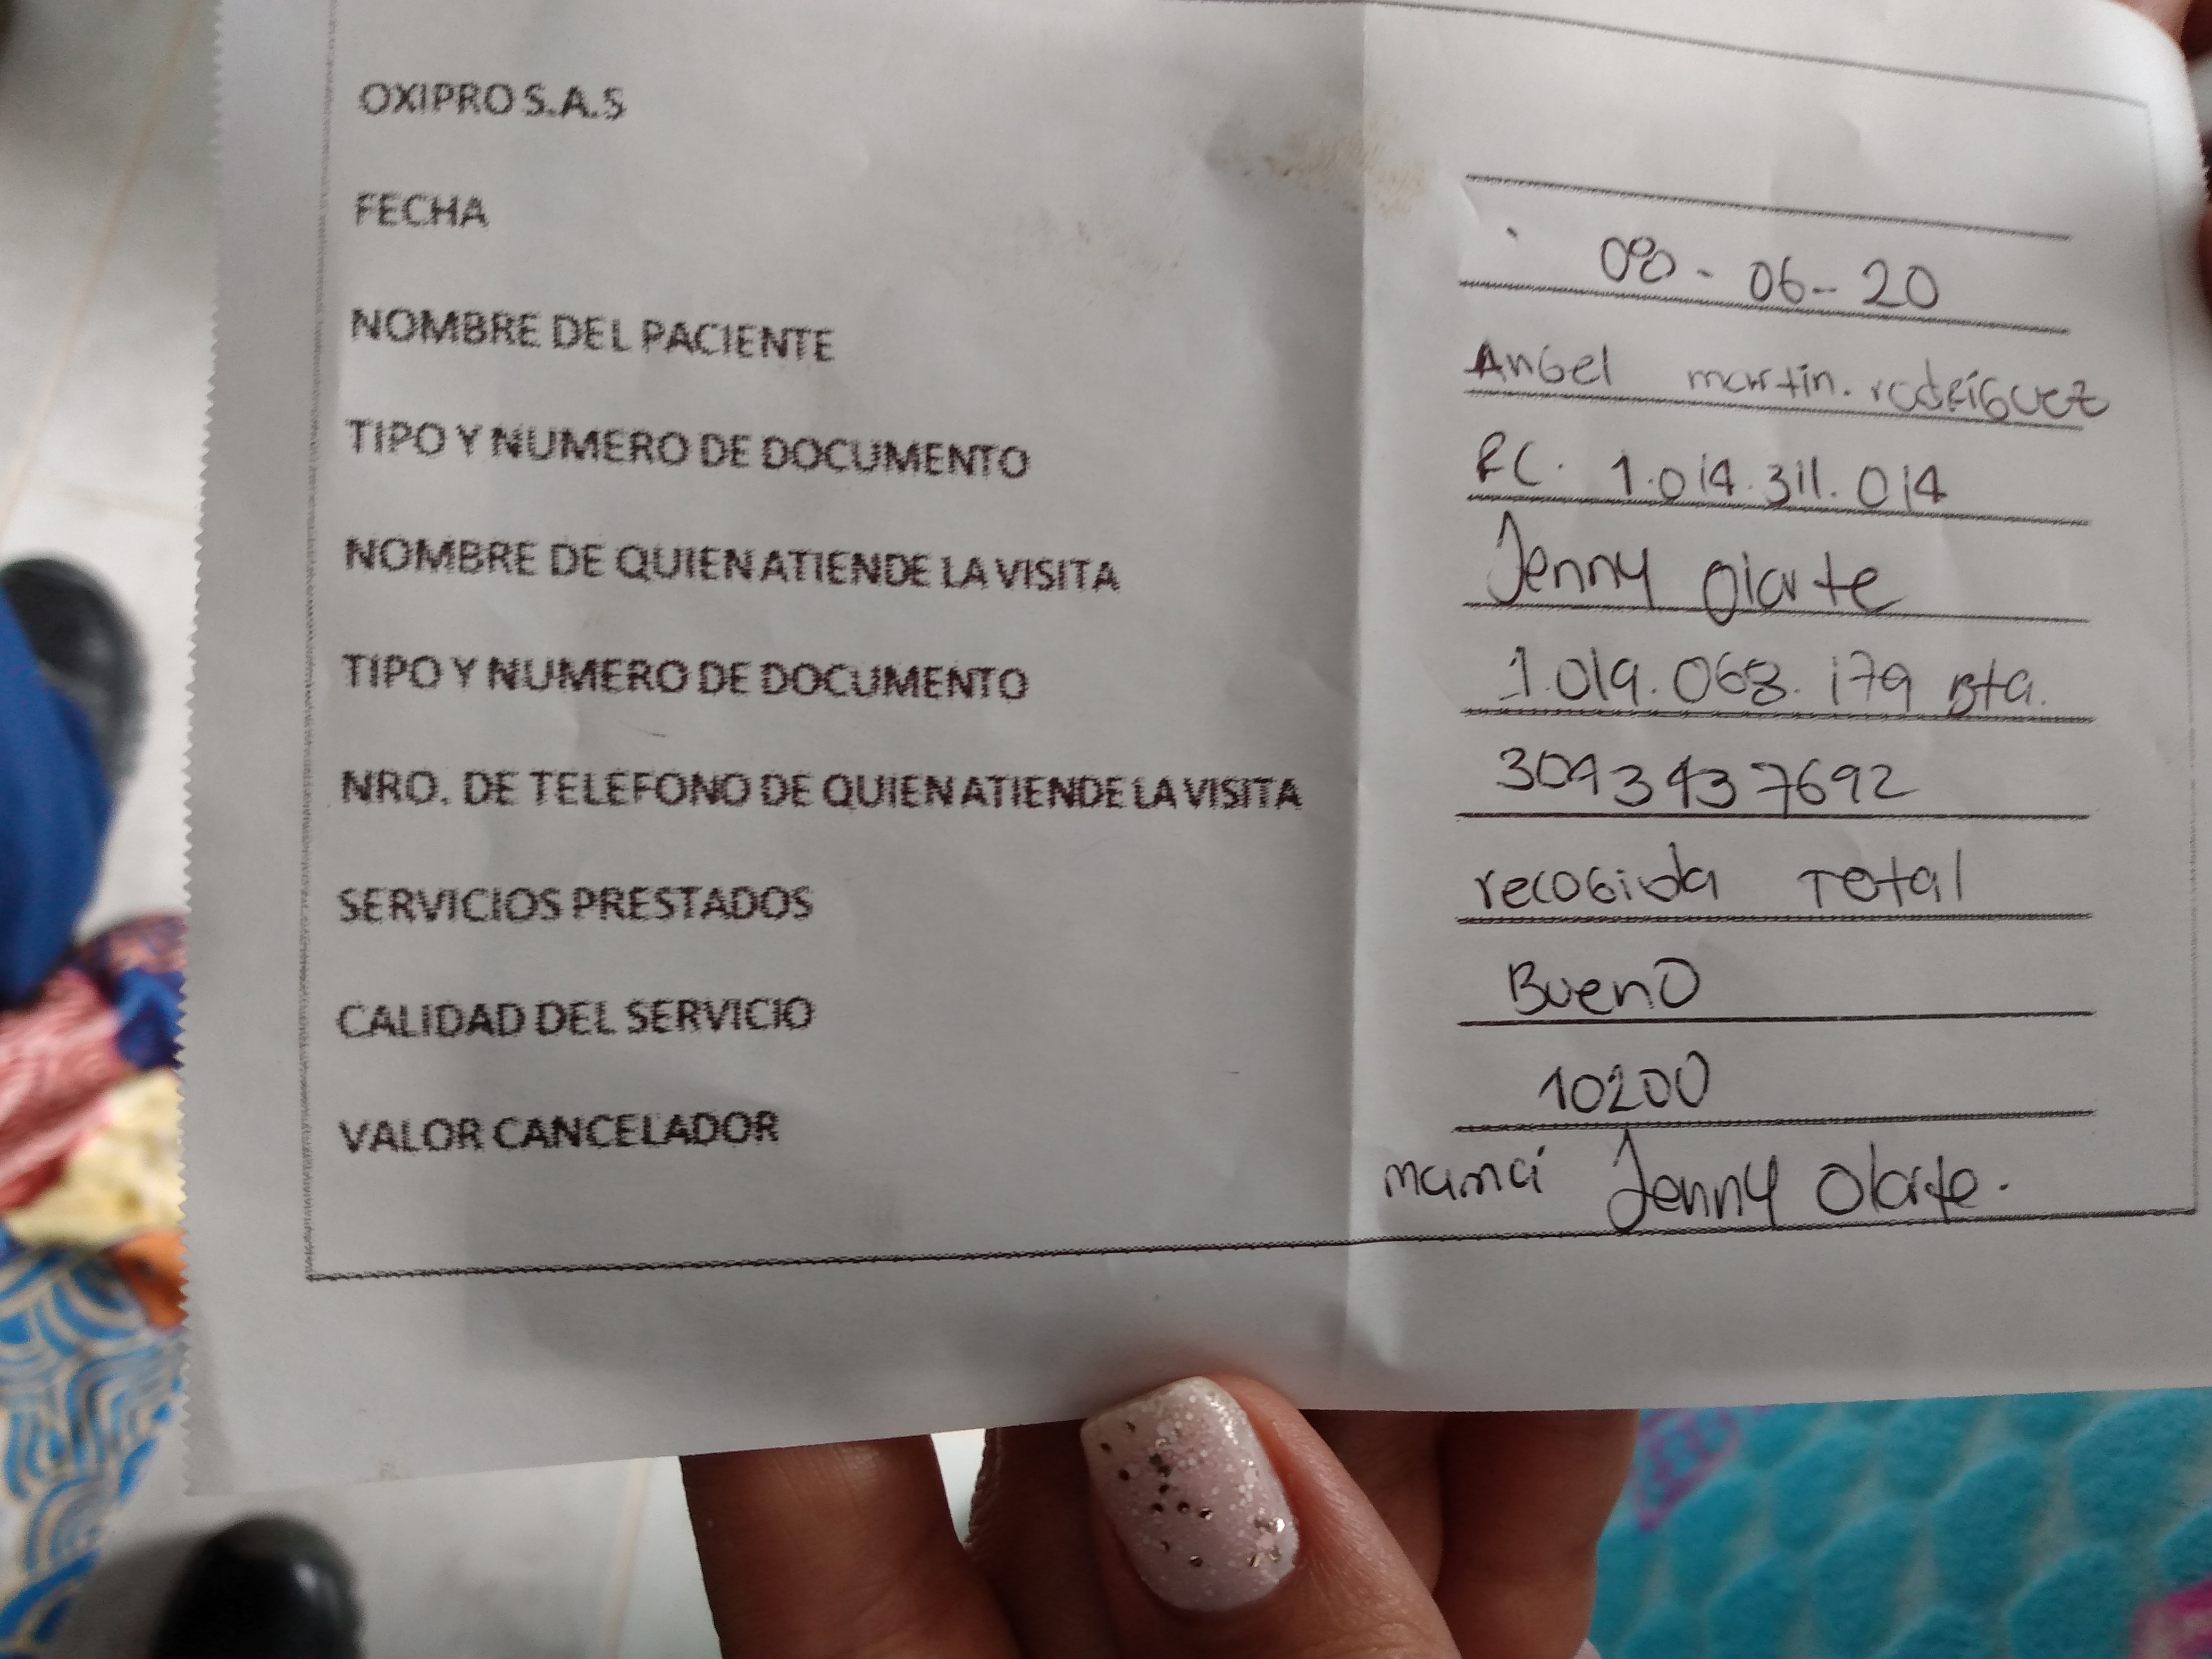 OXIPRO S.A.S
FECHA 08-06-20
NOMBRE DEL PACIENTE Angel martin. rodríguez
TIPO Y NUMERO DE DOCUMENTO RC. 1.014.311.014
NOMBRE DE QUIEN ATIENDE LA VISITA Jenny Olarte
TIPO Y NUMERO DE DOCUMENTO 1.019.068.179 Bta.
NRO. DE TELEFONO DE QUIEN ATIENDE LA VISITA 3043437692
SERVICIOS PRESTADOS recogida Total
CALIDAD DEL SERVICIO Bueno
VALOR CANCELADOR 10200
mamá Jenny Olarte.